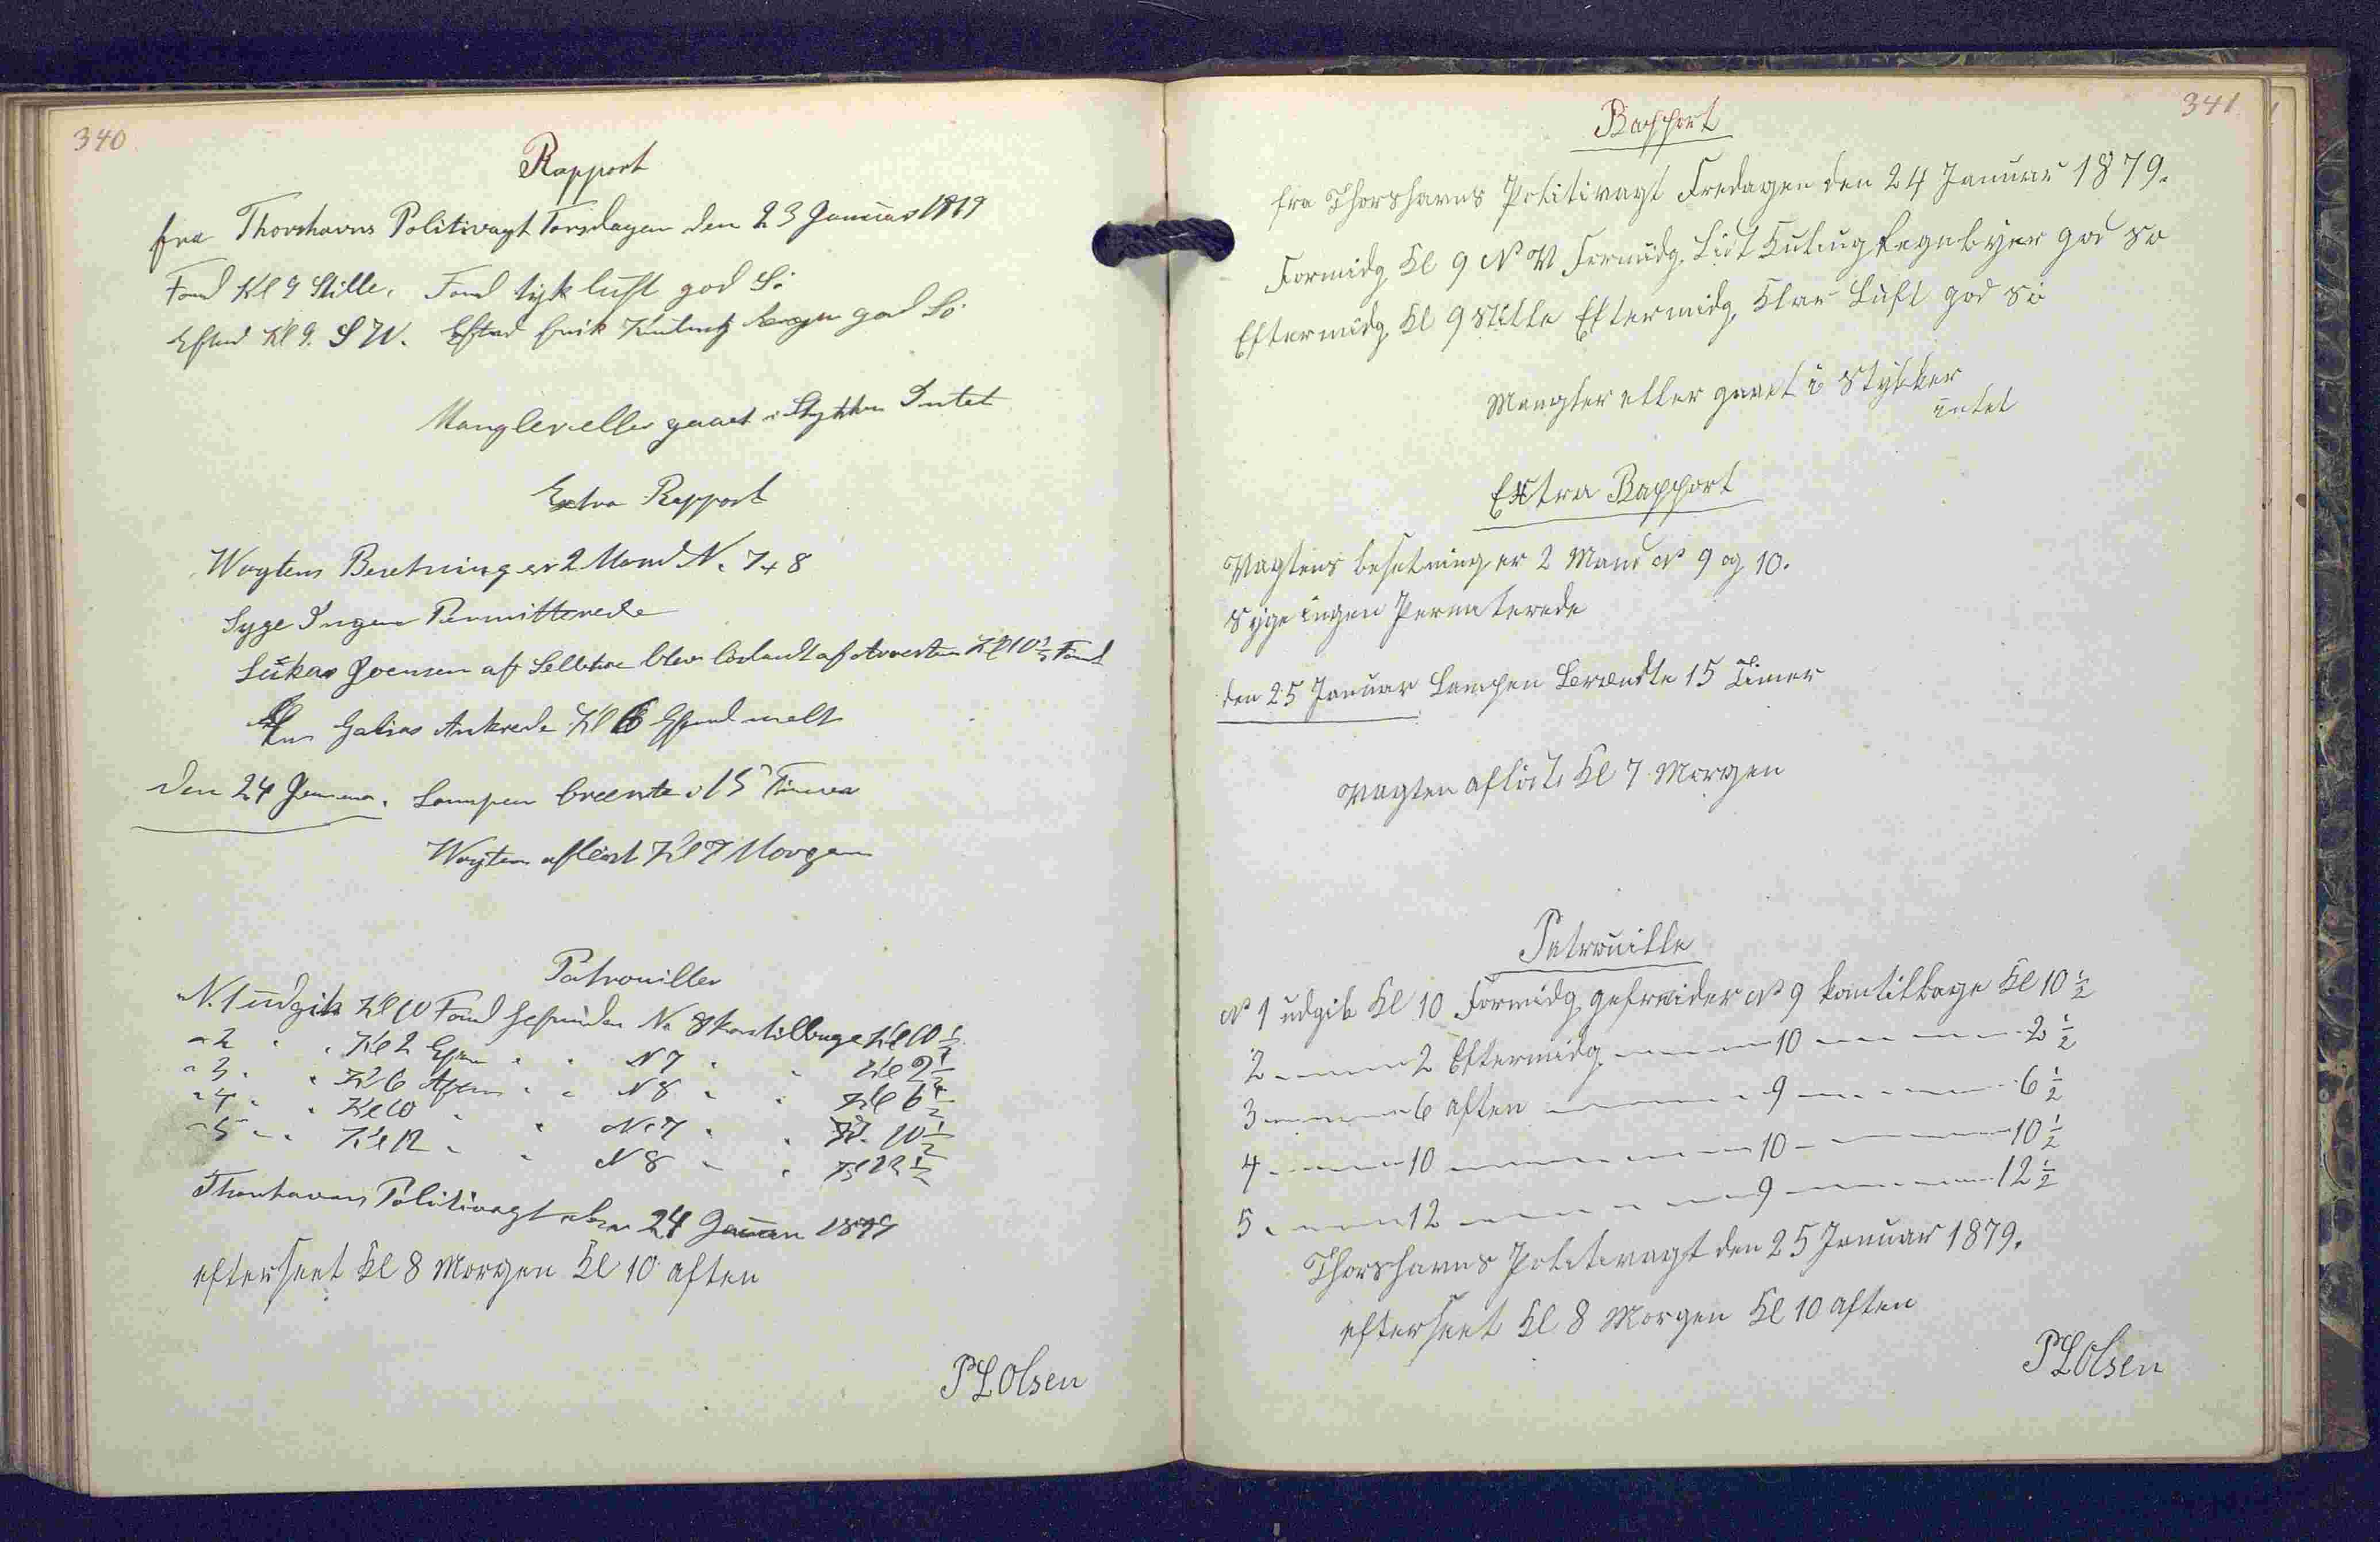 340
Rapport
fra Thorshavns Politivagt Torsdagen den 23 Januar 1879
Fomd Kl 9 Stille. Fomd tyk luft god Sö
Eftmd Kl 9. S W. Eftmd frisk Kuling byger god Sö
Mangler eller gaaet i Stykker Intet
Extra Rapport
Vagtens Besetning er 2 Mand N. 7 + 8
Syge Ingen Permitterede
Lukas Joensen af Selletræ blev lösladt af Arresten Kl 10 1/2 Fomd
Galias Ankrede Kl 6 Efmd
den 24 Januar. Lampen brente i 15 Timer
Vagten aflöst Kl 7 Morgen
Patrouiller
N. 1 udgik Kl 10 Fomd Gefreider No 8 kom tilbage Kl 10 1/2
" 2 " " Kl 2 Efm " " N 7 " " Kl 2 1/2
" 3 " " Kl 6 Aften " " N 8 " " Kl 6 1/2
" 4 " " Kl 10 " " N. 7 " " Kl. 10 1/2
" 5 " " Kl 12 " " N 8 " " Kl 12 1/2
Thorshavns Politivagt den 24 Januar 1879
efterseet Kl 8 Morgen Kl 10 aften
P L Olsen
341
Rapport
fra Thorshavns Politivagt Fredagen den 24 Januar 1879.
Formidg Kl 9 N V Formidg. Lidt Kuling Regnbyer god sö
Eftermidg Kl 9 Stille Eftermidg, Klar Luft god sö
Mangler eller gaaet i Stykker
intet
Extra Rapport
Vagtens besetning er 2 Mand No 9 og 10.
Syge ingen Permiterede
den 25 Januar Lampen Brændte 15 Timer
Vagten aflöst Kl 7 Morgen
Patrouille
No 1 udgik Kl 10 Formidg gefreider No 9 kom tilbage Kl 10 1/2
2 — 2 Eftermidg — 10 — 2 1/2
3 — 6 aften — 9 — 6 1/2
4 — 10 — 10 — 10 1/2
5 — 12 — 9 — 12 1/2
Thorshavns Politivagt den 25 Januar 1879.
efterseet Kl 8 Morgen Kl 10 aften
P L Olsen